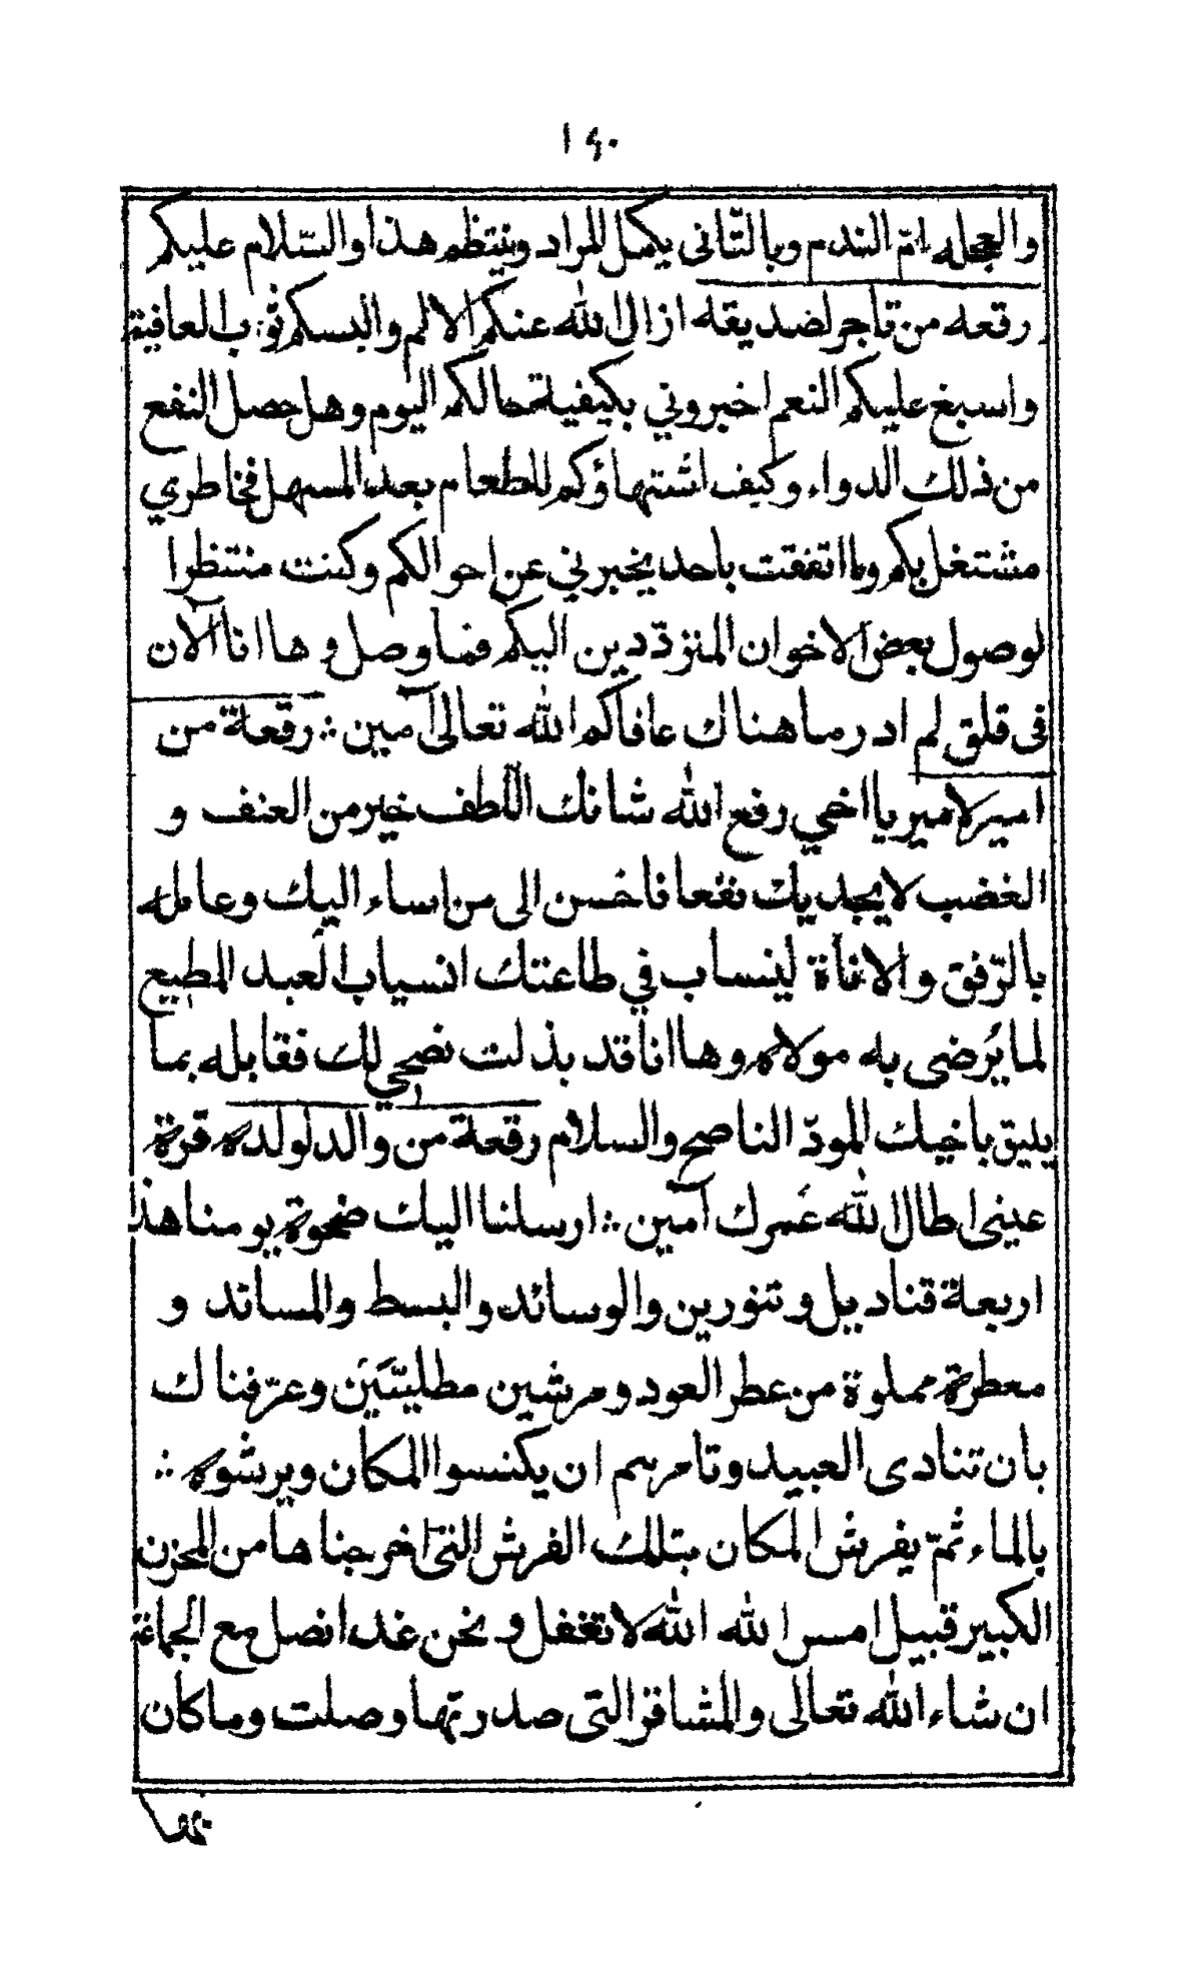 ١٤٠
والعجله ام الندم وبالتّانى يكمل المراد وينتظم هذا والسّلام عليكم
رقعه من تاجر لصديقه ازال الله عنكم الالم والبسكم ثوب العافية
واسبغ عليكم النعم اخبروني بكيفية حالكم اليوم وهل حصل النفع
من ذلك الدواء وكيف اشتهاؤكم للطعام بعد المسهل فخاطري
مشتغل بكم وما اتفقت باحد يخبرني عن احوالكم وكنت منتظرا
لوصول بعض الاخوان المتردّدين اليكم فما وصل وها انا الآن
فى قلق لم ادر ما هناك عافاكم الله تعالى آمين ∴ رقعة من
امير لامير يا اخي رفع الله شانك اللطف خير من العنف و
الغضب لا يجديك نفعا فاحسن الى من اساء اليك وعامله
بالرّفق والاناة لينساب في طاعتك انسياب العبد المطيع
لما يُرضى به مولاه وها انا قد بذلت نصحي لك فقابله بما
يليق باخيك المودّ الناصح والسلام رقعة من والد لولده قرة
عينى اطال الله عمرك آمين ∴ ارسلنا اليك ضحوة يومنا هذا
اربعة قناديل وتنورين والوسائد والبسط والمساند و
معطرة مملوة من عطر العود ومرشين مطليّتَين وعرّفناك
بان تنادى العبيد وتامرهم ان يكنسوا المكان ويرشوه ∴
بالماء ثمّ يفرش المكان بتلك الفرش التى اخرجناها من المخزن
الكبير قبيل امس الله الله لا تغفل ونحن غدا نصل مع الجماعة
ان شاء الله تعالى والمشاقر التى صدرتها وصلت وما كان